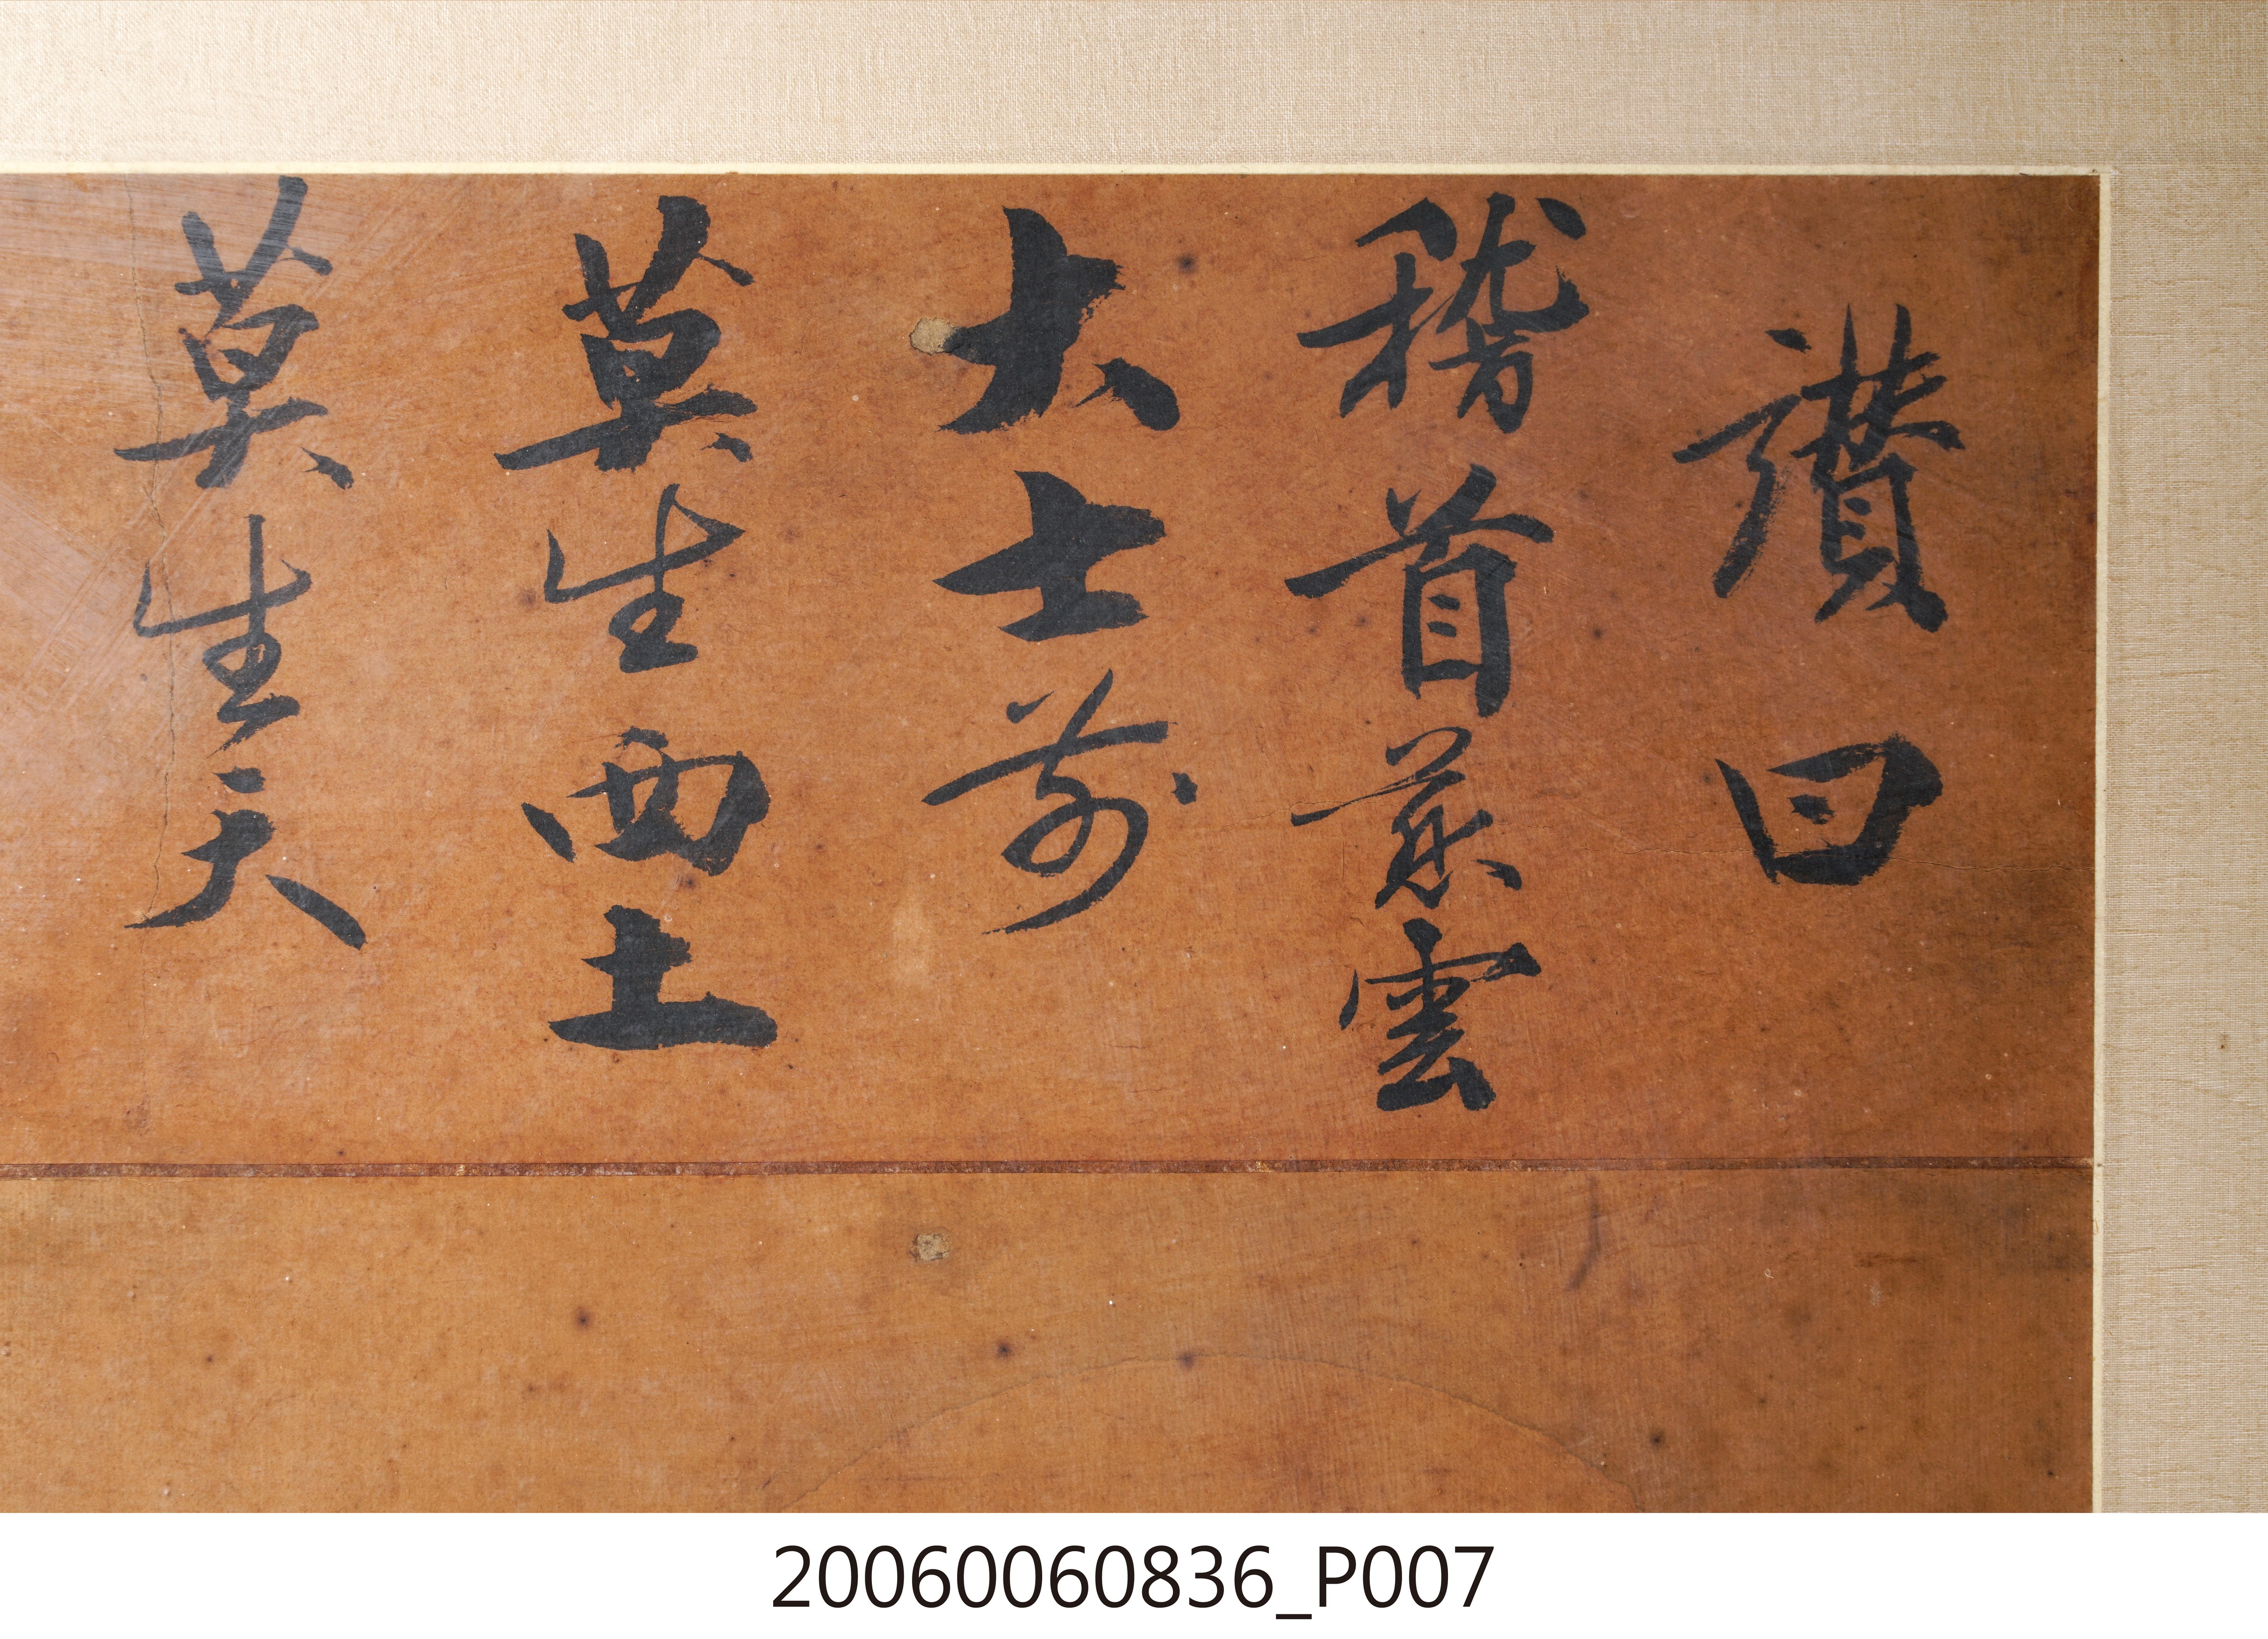 讃曰
稽首慈雲
大士前
莫生西土
莫生天
20060060836_P007